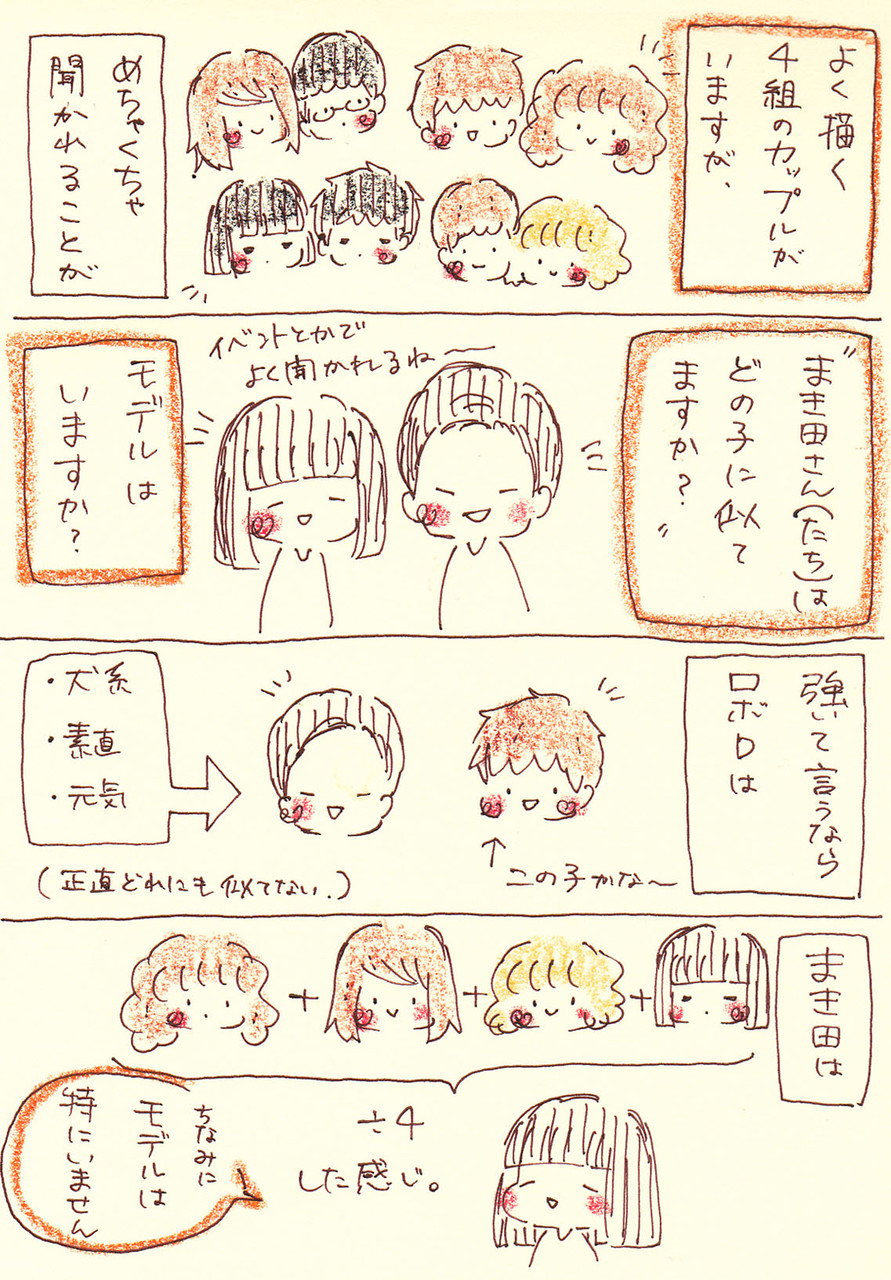 よく描く
4組のカップルが
いますが、
めちゃくちゃ
聞かれることが
"まき田さん(たち)は
どの子に似て
ますか?"
イベントとかで
よく聞かれるね〜
モデルは
いますか?
強いて言うなら
ロボロは
この子かな〜
・犬系
・素直
・元気
(正直どれにも似てない.)
まき田は
+
+
+
÷4
した感じ。
ちなみに
モデルは
特にいません